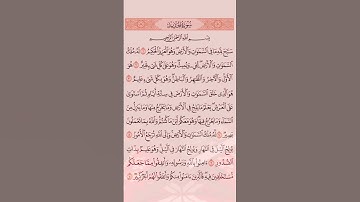 سُورَةُ الحَدِيدِ
بِسْمِ اللَّهِ الرَّحْمَٰنِ الرَّحِيمِ
سَبَّحَ لِلَّهِ مَا فِي السَّمَاوَاتِ وَالْأَرْضِ وَهُوَ الْعَزِيزُ الْحَكِيمُ ١ لَهُ مُلْكُ
السَّمَاوَاتِ وَالْأَرْضِ يُحْيِي وَيُمِيتُ وَهُوَ عَلَىٰ كُلِّ شَيْءٍ قَدِيرٌ ٢ هُوَ
الْأَوَّلُ وَالْآخِرُ وَالظَّاهِرُ وَالْبَاطِنُ وَهُوَ بِكُلِّ شَيْءٍ عَلِيمٌ ٣ هُوَ
الَّذِي خَلَقَ السَّمَاوَاتِ وَالْأَرْضَ فِي سِتَّةِ أَيَّامٍ ثُمَّ اسْتَوَىٰ
عَلَى الْعَرْشِ يَعْلَمُ مَا يَلِجُ فِي الْأَرْضِ وَمَا يَخْرُجُ مِنْهَا وَمَا يَنزِلُ مِنَ
السَّمَاءِ وَمَا يَعْرُجُ فِيهَا وَهُوَ مَعَكُمْ أَيْنَ مَا كُنتُمْ وَاللَّهُ بِمَا تَعْمَلُونَ
بَصِيرٌ ٤ لَّهُ مُلْكُ السَّمَاوَاتِ وَالْأَرْضِ وَإِلَى اللَّهِ تُرْجَعُ الْأُمُورُ ٥
يُولِجُ اللَّيْلَ فِي النَّهَارِ وَيُولِجُ النَّهَارَ فِي اللَّيْلِ وَهُوَ عَلِيمٌ بِذَاتِ
الصُّدُورِ ٦ آمِنُوا بِاللَّهِ وَرَسُولِهِ وَأَنفِقُوا مِمَّا جَعَلَكُم
مُّسْتَخْلَفِينَ فِيهِ فَالَّذِينَ آمَنُوا مِنكُمْ وَأَنفَقُوا لَهُمْ أَجْرٌ كَبِيرٌ ٧